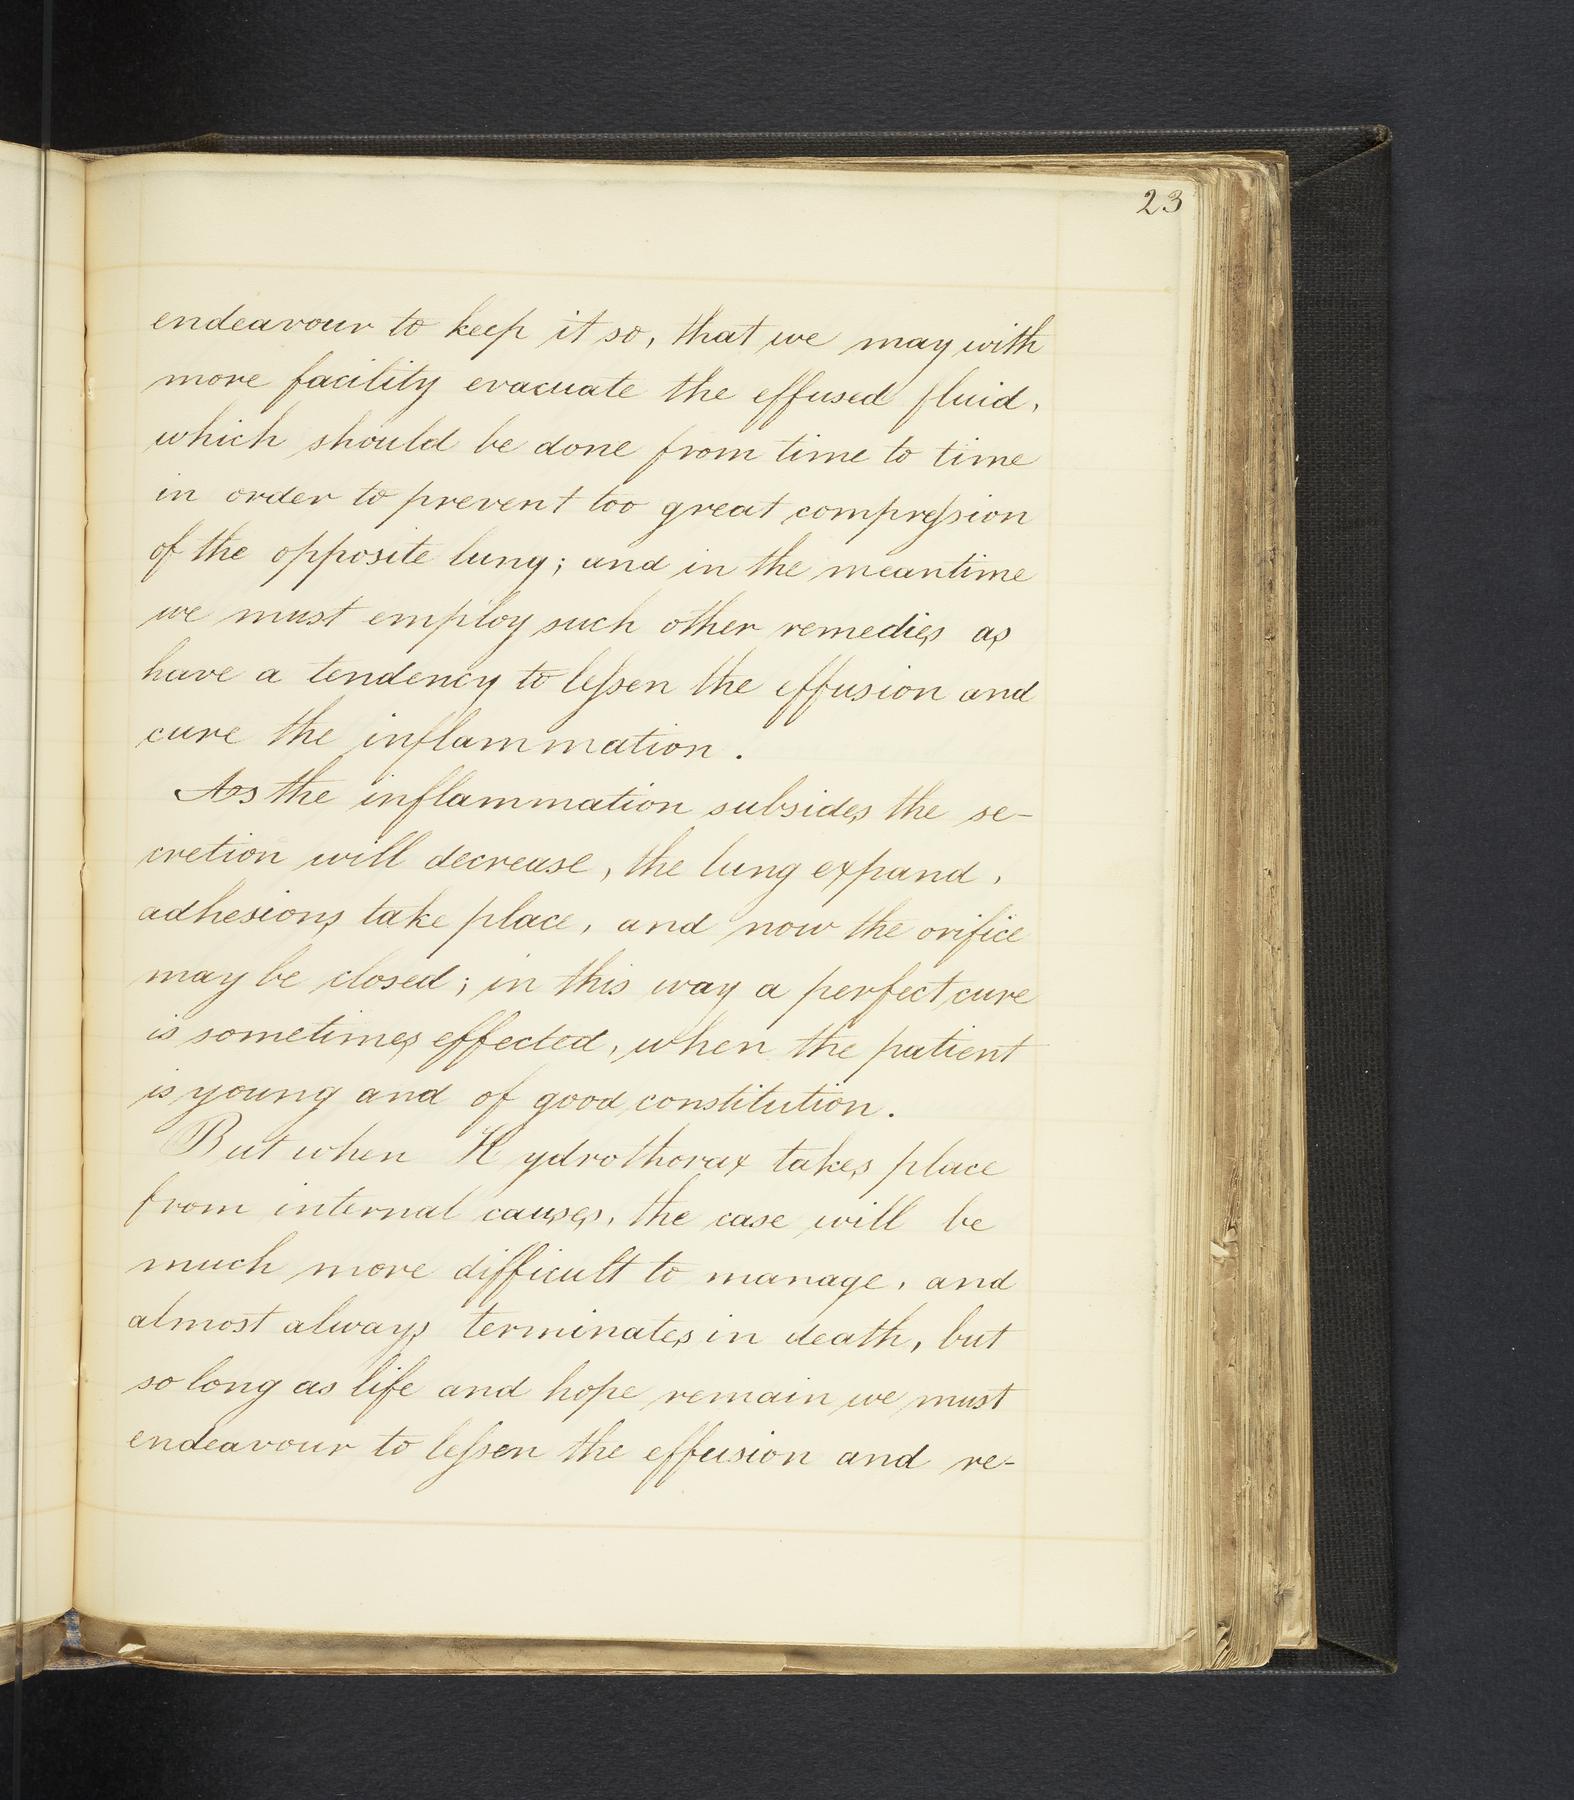 23
endeavour to keep it so, that we may with
more facility evacuate the effused fluid,
which should be done from time to time
in order to prevent too great compreſsion
of the opposite lung; and in the meantime
we must employ such other remedies as
have a tendency to leſsen the effusion and
cure the inflammation.
As the inflammation subsides the se-
cretion will decrease, the lung expand,
adhesions take place, and now the orifice
may be closed; in this way a perfect cure
is sometimes effected, when the patient
is young and of good constitution.
But when Hydrothorax takes place
from internal causes, the case will be
much more difficult to manage, and
almost always terminates in death, but
so long as life and hope remain we must
endeavour to leſsen the effusion and re-